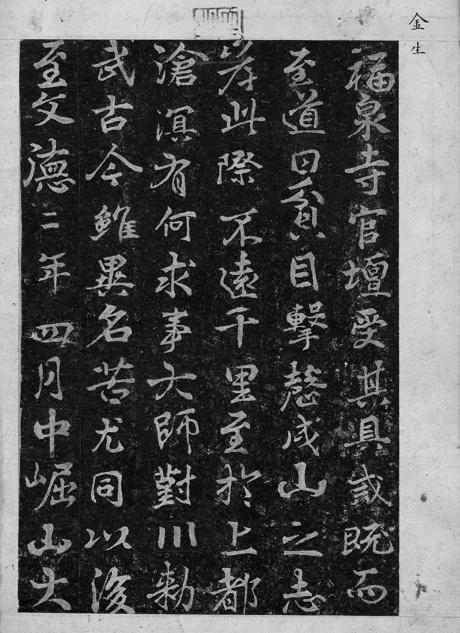 金生
福泉寺官壇受其具戒既而
至道曰目擊成山之志
此際不遠千里至於上都
滄溟有何求事大師對川勅
武古今雖異名苦尤同以後
至文德二年四月中崛山大